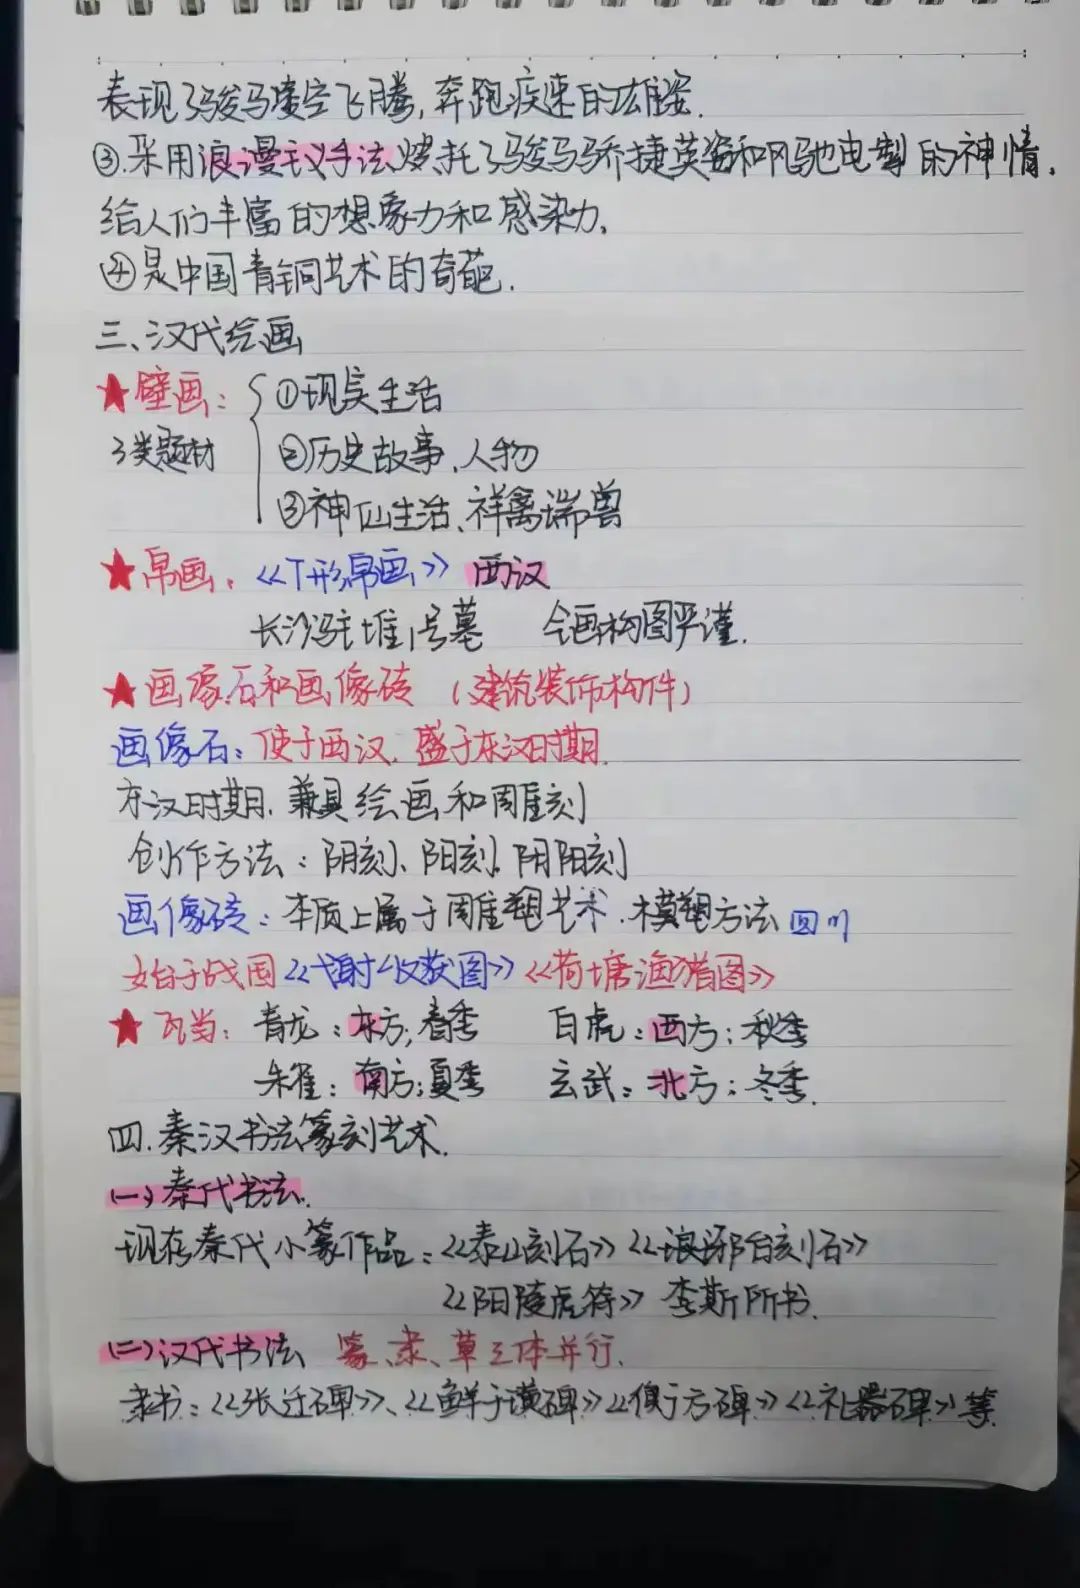 表现了骏马凌空飞腾,奔跑疾速的雄姿.
③.采用浪漫主义手法烘托了骏马矫捷英姿和风驰电掣的神情.
给人们丰富的想象力和感染力.
④是中国青铜艺术的奇葩.
三、汉代绘画
★壁画: ①现实生活
3类题材 ②历史故事、人物
③神仙生活、祥禽瑞兽
★帛画: 《T形帛画》 西汉
长沙马王堆1号墓 全画构图严谨.
★画像石和画像砖 (建筑装饰构件)
画像石: 使于西汉. 盛于东汉时期.
东汉时期. 兼具绘画和雕刻
创作方法: 阴刻、阳刻、阴阳刻
画像砖: 本质上属于雕塑艺术. 模塑方法 四川
始于战国《弋射收获图》《荷塘渔猎图》
★瓦当: 青龙:东方;春季 白虎:西方;秋季
朱雀:南方;夏季 玄武:北方;冬季.
四.秦汉书法篆刻艺术.
(一)秦代书法.
现存秦代小篆作品:《泰山刻石》《琅琊台刻石》
《阳陵虎符》 李斯所书.
(二)汉代书法 篆、隶、草三体并行.
隶书:《张迁碑》、《鲜于璜碑》《方碑》《礼器碑》等